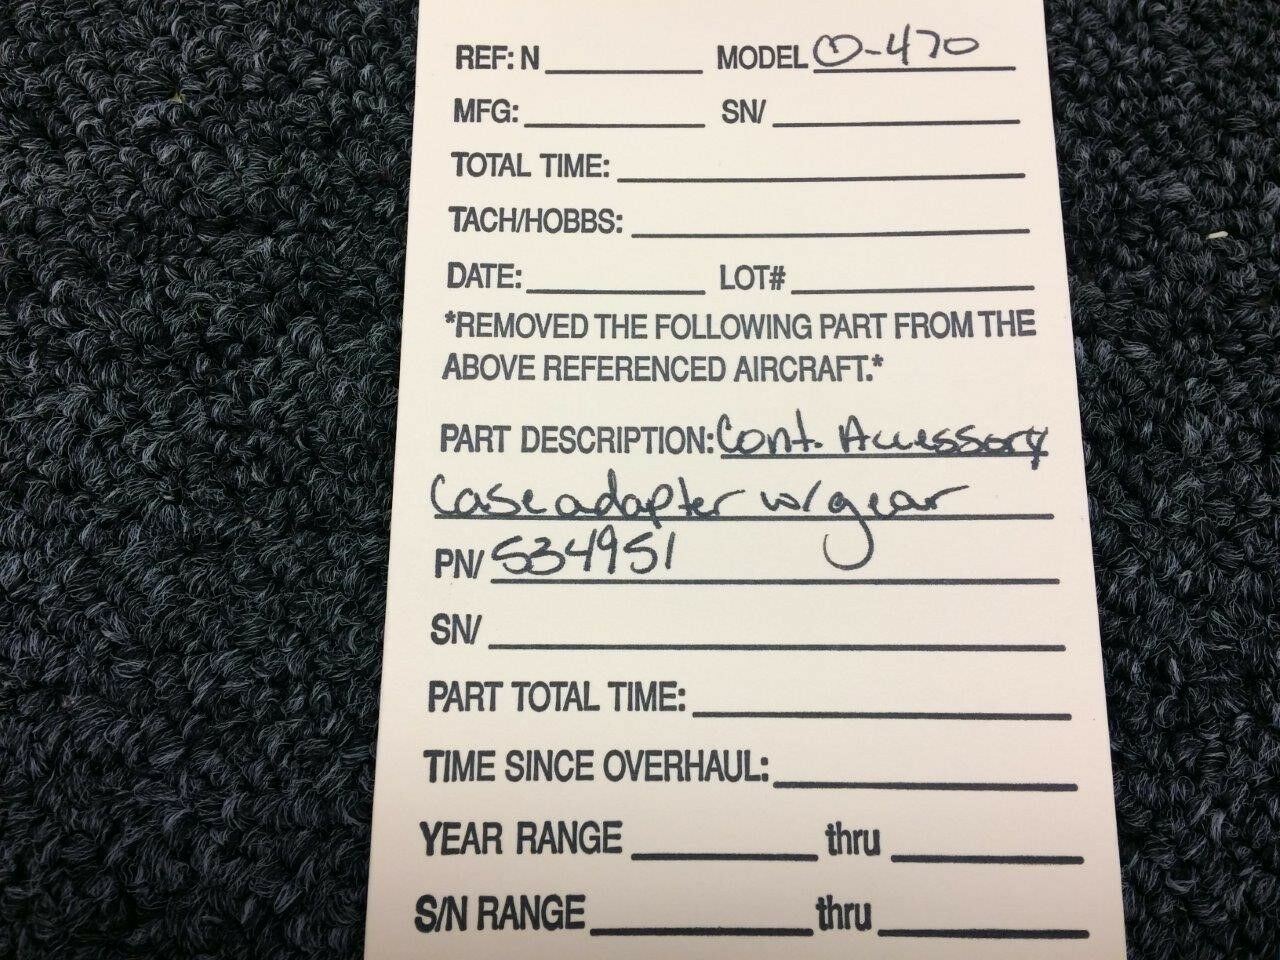 REF: N MODEL O-470
MFG: SN/
TOTAL TIME:
TACH/HOBBS:
DATE: LOT#
*REMOVED THE FOLLOWING PART FROM THE
ABOVE REFERENCED AIRCRAFT.*
PART DESCRIPTION: Cont. Accessory
Case adapter w/gear
PN/ 534951
SN/
PART TOTAL TIME:
TIME SINCE OVERHAUL:
YEAR RANGE thru
S/N RANGE thru